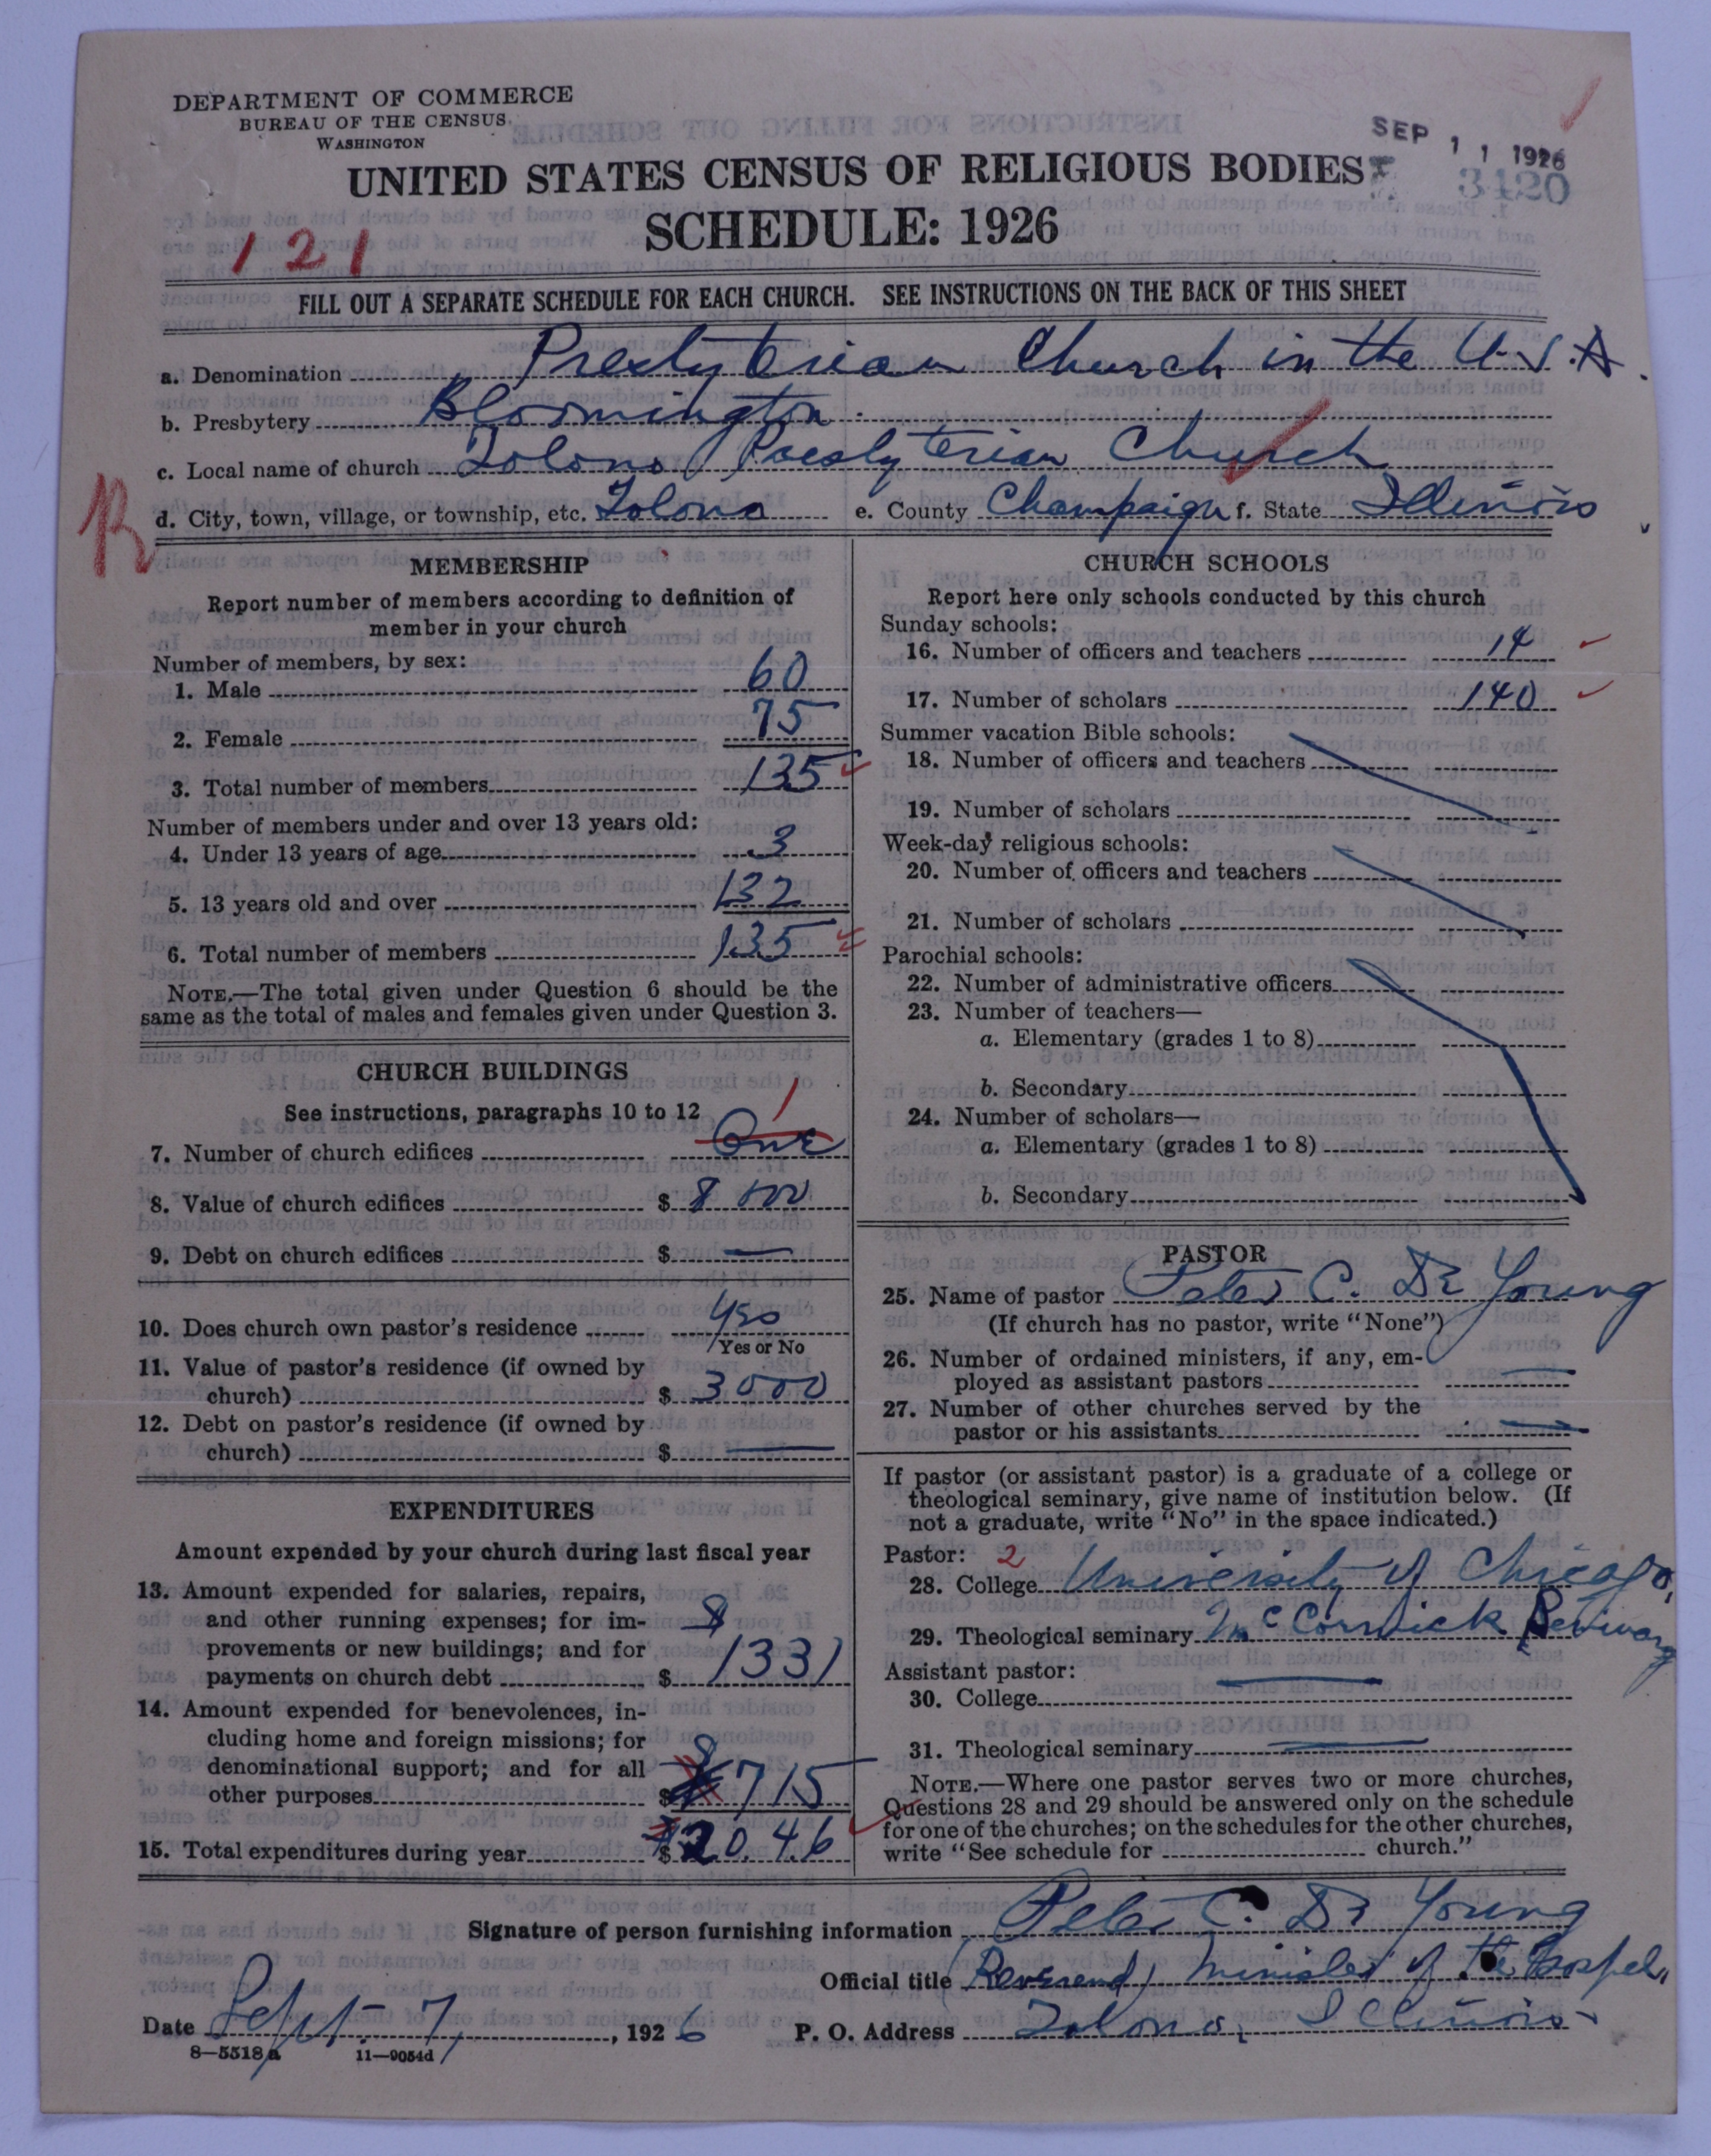 DEPARTMENT OF COMMERCE
BUREAU OF THE CENSUS
WASHINGTON
SEP 11 1926
3420
UNITED STATES CENSUS OF RELIGIOUS BODIES
SCHEDULE: 1926
121
FILL OUT A SEPARATE SCHEDULE FOR EACH CHURCH. SEE INSTRUCTIONS ON THE BACK OF THIS SHEET
a. Denomination Presbyterian Church in the U.S.A.
b. Presbytery Bloomington
c. Local name of church Tolono Presbyterian Church
R
d. City, town, village, or township, etc. Tolono e. County Champaign f. State Illinois
MEMBERSHIP
Report number of members according to definition of
member in your church
Number of members, by sex:
1. Male 60
2. Female 75
3. Total number of members 135
Number of members under and over 13 years old:
4. Under 13 years of age 3
5. 13 years old and over 132
6. Total number of members 135
NOTE.—The total given under Question 6 should be the
same as the total of males and females given under Question 3.
CHURCH BUILDINGS
See instructions, paragraphs 10 to 12
1
7. Number of church edifices One
8. Value of church edifices $ 8000
9. Debt on church edifices $ —
10. Does church own pastor's residence Yes
Yes or No
11. Value of pastor's residence (if owned by
church) $ 3000
12. Debt on pastor's residence (if owned by
church) $ —
EXPENDITURES
Amount expended by your church during last fiscal year
13. Amount expended for salaries, repairs,
and other running expenses; for im-
provements or new buildings; and for $
payments on church debt $ 1331
14. Amount expended for benevolences, in-
cluding home and foreign missions; for
denominational support; and for all $
other purposes $ 715
15. Total expenditures during year $ 2046
CHURCH SCHOOLS
Report here only schools conducted by this church
Sunday schools:
16. Number of officers and teachers 14
17. Number of scholars 140
Summer vacation Bible schools:
18. Number of officers and teachers
19. Number of scholars
Week-day religious schools:
20. Number of officers and teachers
21. Number of scholars
Parochial schools:
22. Number of administrative officers
23. Number of teachers—
a. Elementary (grades 1 to 8)
b. Secondary
24. Number of scholars—
a. Elementary (grades 1 to 8)
b. Secondary
PASTOR
25. Name of pastor Peter C. De Young
(If church has no pastor, write "None")
26. Number of ordained ministers, if any, em-
ployed as assistant pastors —
27. Number of other churches served by the
pastor or his assistants —
If pastor (or assistant pastor) is a graduate of a college or
theological seminary, give name of institution below. (If
not a graduate, write "No" in the space indicated.)
Pastor: 2
28. College University of Chicago,
29. Theological seminary McCormick Seminary
Assistant pastor:
30. College —
31. Theological seminary —
NOTE.—Where one pastor serves two or more churches,
Questions 28 and 29 should be answered only on the schedule
for one of the churches; on the schedules for the other churches,
write "See schedule for church."
Signature of person furnishing information Peter C. De Young
Official title (Reverend) Minister of the Gospel,
Date Sept. 7, 1926 P. O. Address Tolono, Illinois
8—5518a 11—9054d